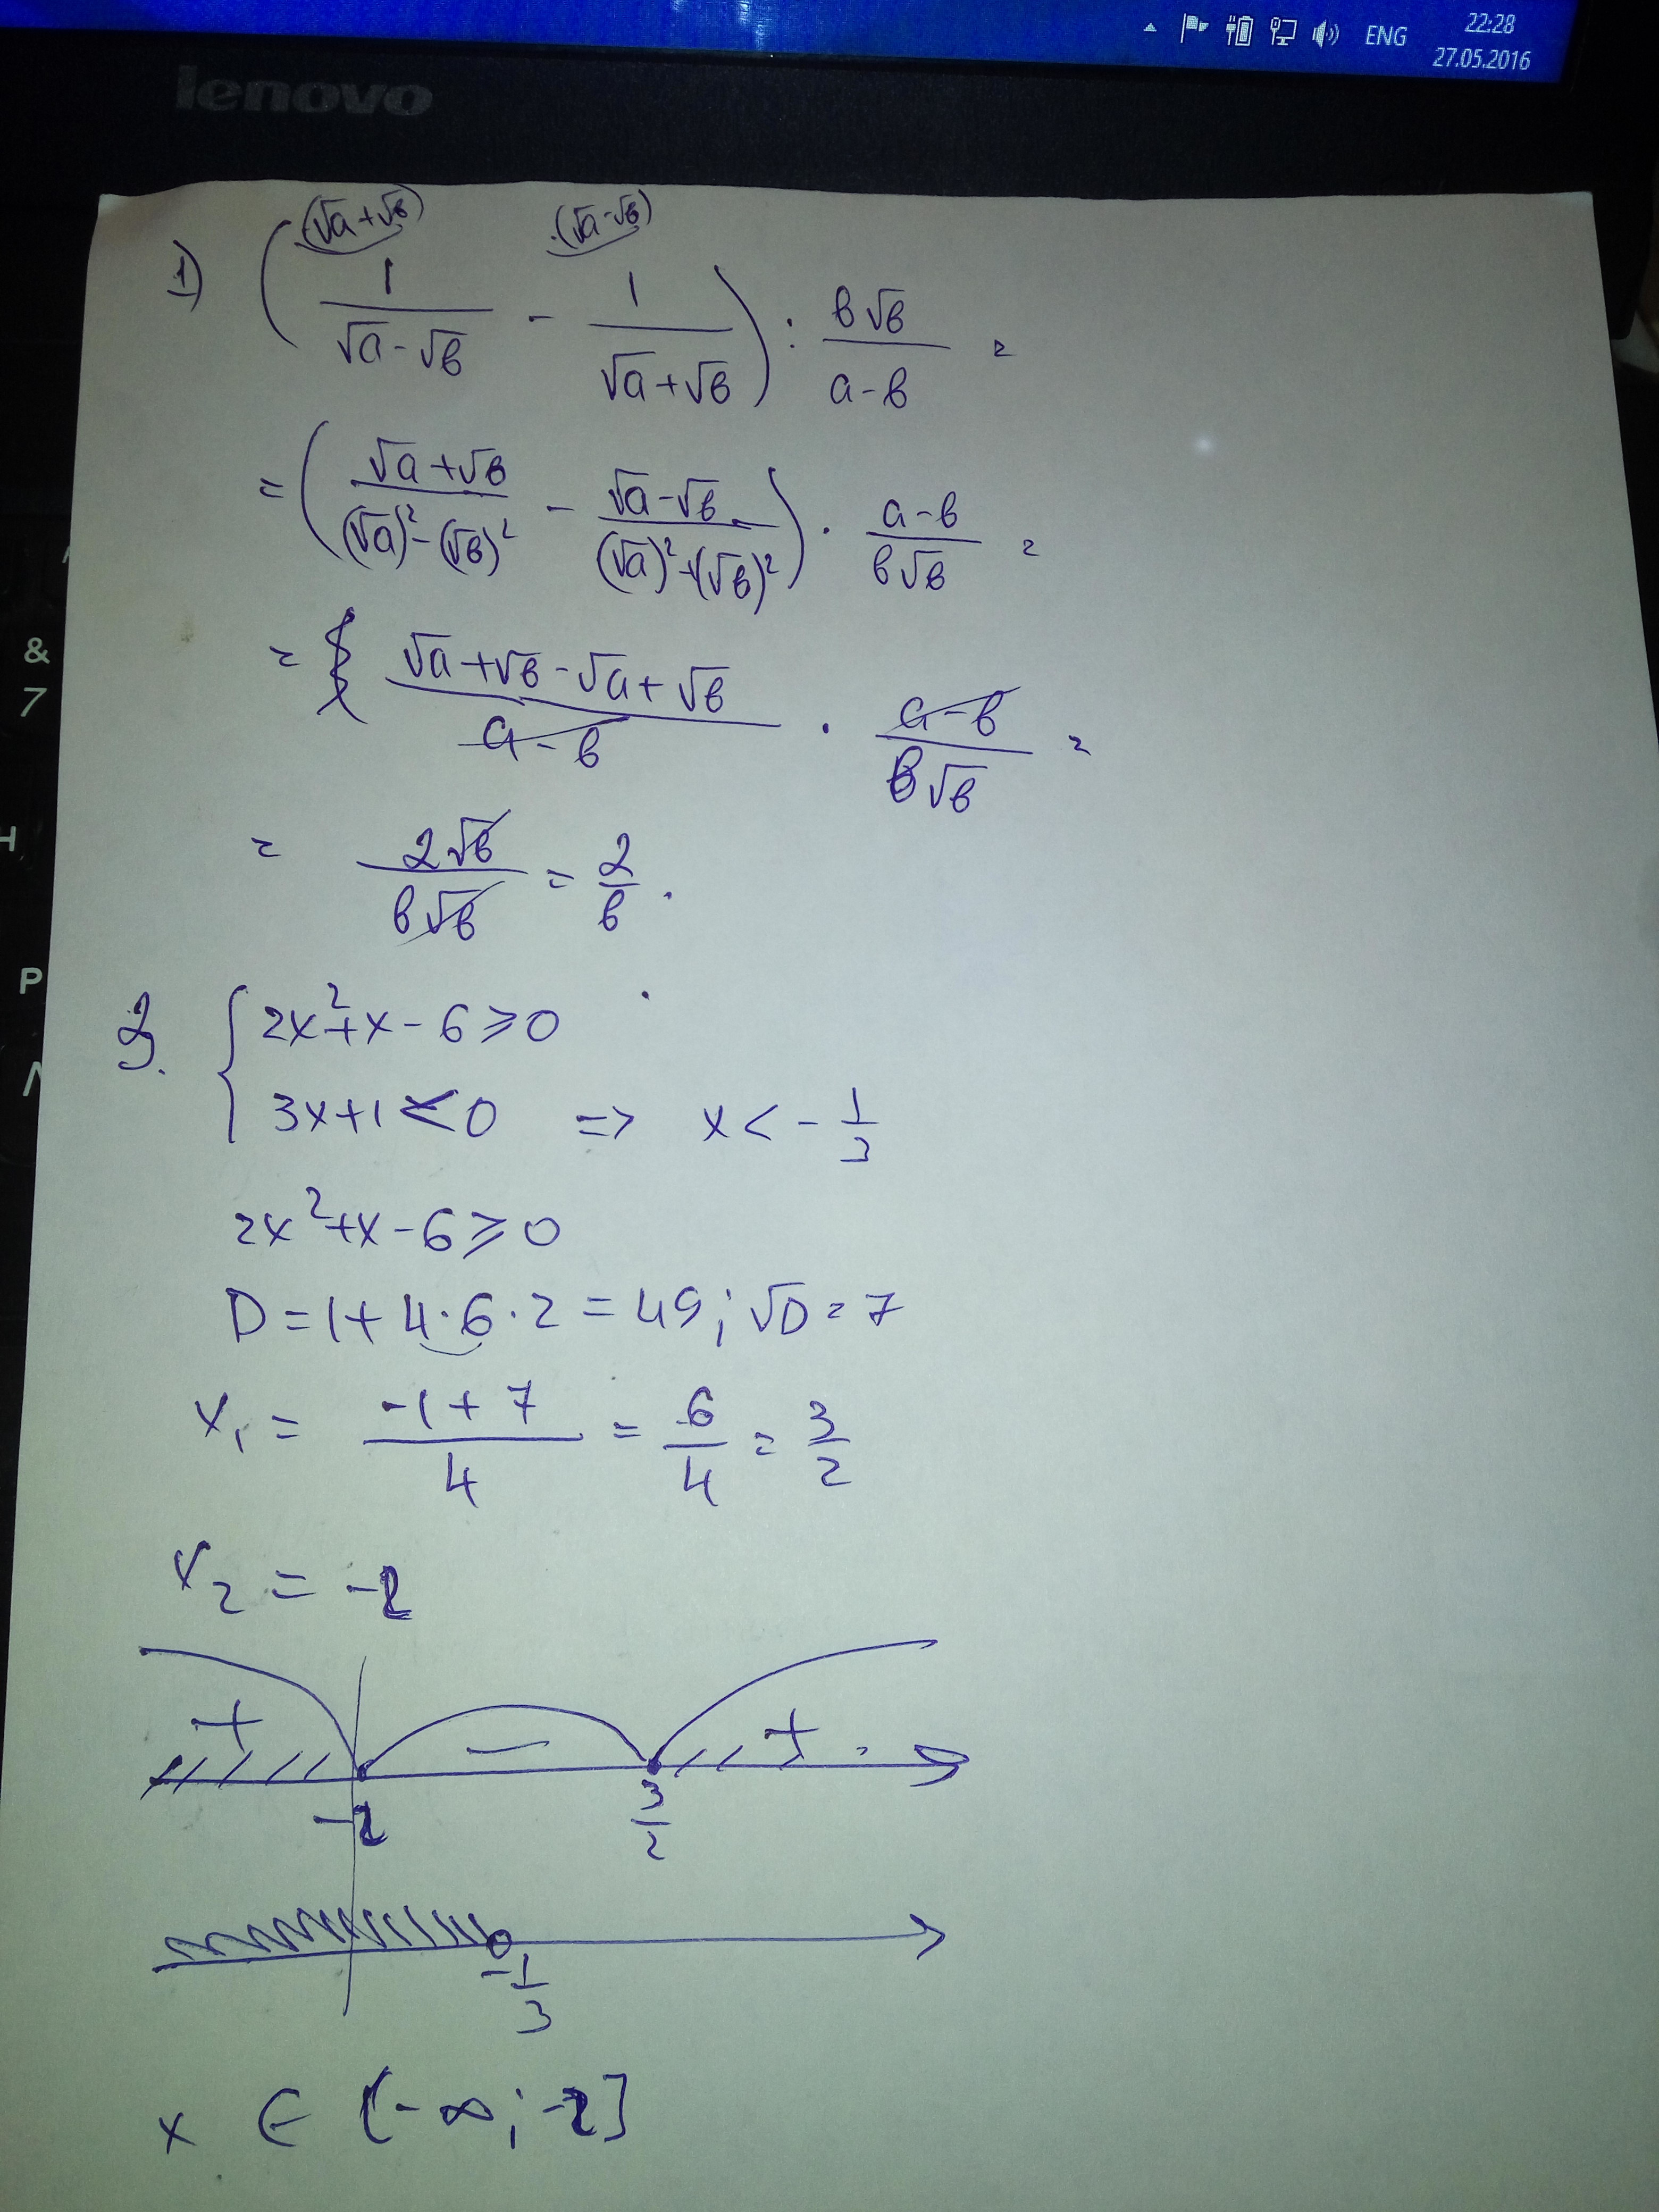 ENG
22:28
27.05.2016
lenovo
&
7
H
P
1) (1/(√a-√в) ·(√a+√в) - 1/(√a+√в) ·(√a-√в)) : в√в/(a-в) =
= ((√a+√в)/((√a)²-(√в)²) - (√a-√в)/((√a)²-(√в)²)) · (a-в)/(в√в) =
= (√a+√в-√a+√в)/(a-в) · (a-в)/(в√в) =
= 2√в/(в√в) = 2/в.
2. { 2x²+x-6⩾0
3x+1<0 => x<-1/3
2x²+x-6⩾0
D=1+4·6·2=49; √D=7
x₁ = (-1+7)/4 = 6/4 = 3/2
x₂ = -2
+ − +
-2 3/2
-1/3
x ∈ (-∞; -2]